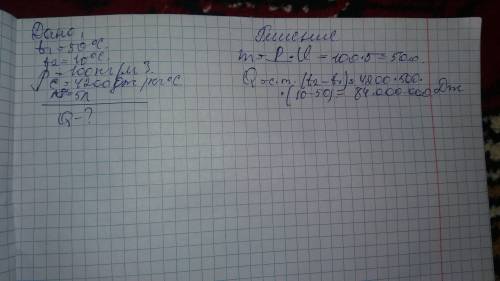 Дано:
t₁ = 50°C
t₂ = 10°C
p = 100 кг/м³
c = 4200 Дж/кг°C
= 5л
Q - ?
Решение
m = P · V = 100 · 5 = 500.
Q = c · m · (t₂ - t₁) = 4200 · 500 ·
· (10 - 50) = 84.000.000 Дж